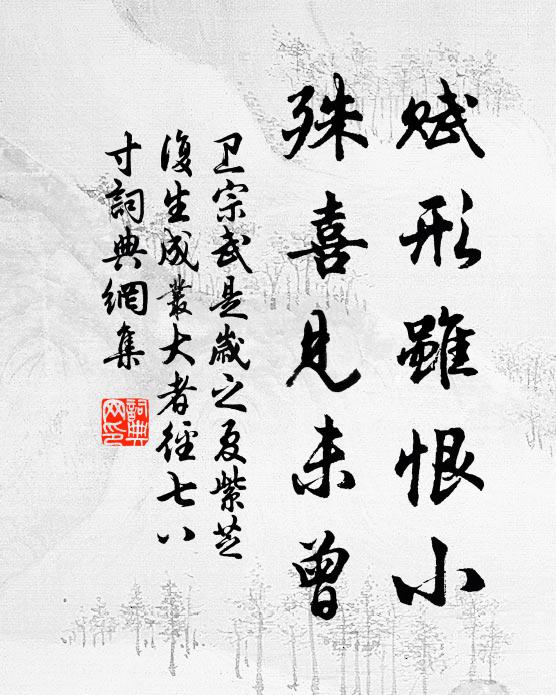 赋形雖恨小
殊喜見未曾
卫宗武是歲之夏紫芝
復生成叢大者徑七八
寸詞典網集
詞典
网印